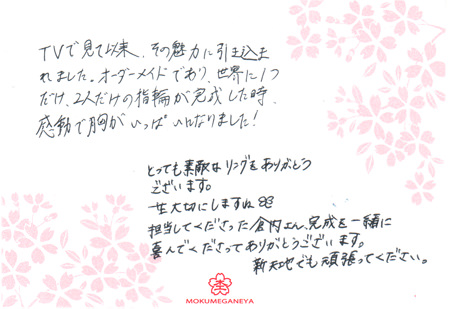 TVで見て以来、その魅力に引き込ま
れました。オーダーメイドであり、世界に1つ
だけ、2人だけの指輪が完成した時、
感動で胸がいっぱいになりました!
とっても素敵なリングをありがとう
ございます。
一生大切にしますね
担当してくださった倉内さん、完成を一緒に
喜んでくださってありがとうございます。
新天地でも頑張ってください。
MOKUMEGANEYA